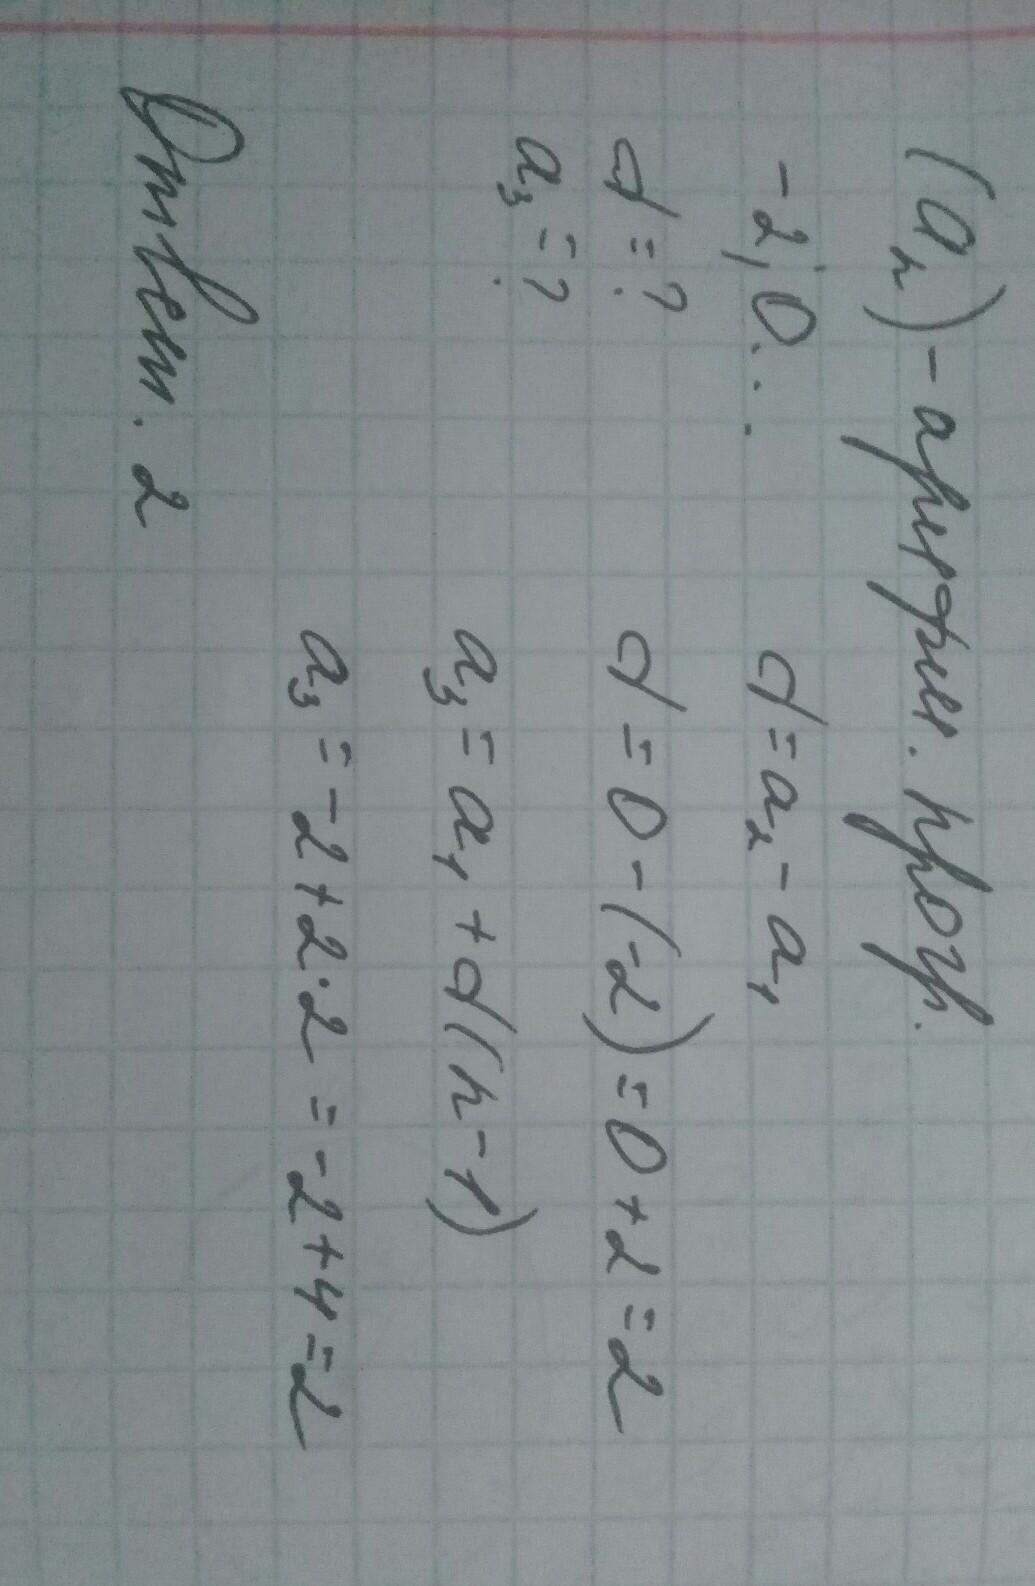 (aₙ) - арифм. прог.
-2; 0...
d = ?
a₃ = ?
d = a₂ - a₁
d = 0 - (-2) = 0 + 2 = 2
a₃ = a₁ + d(n - 1)
a₃ = -2 + 2 · 2 = -2 + 4 = 2
Ответ. 2